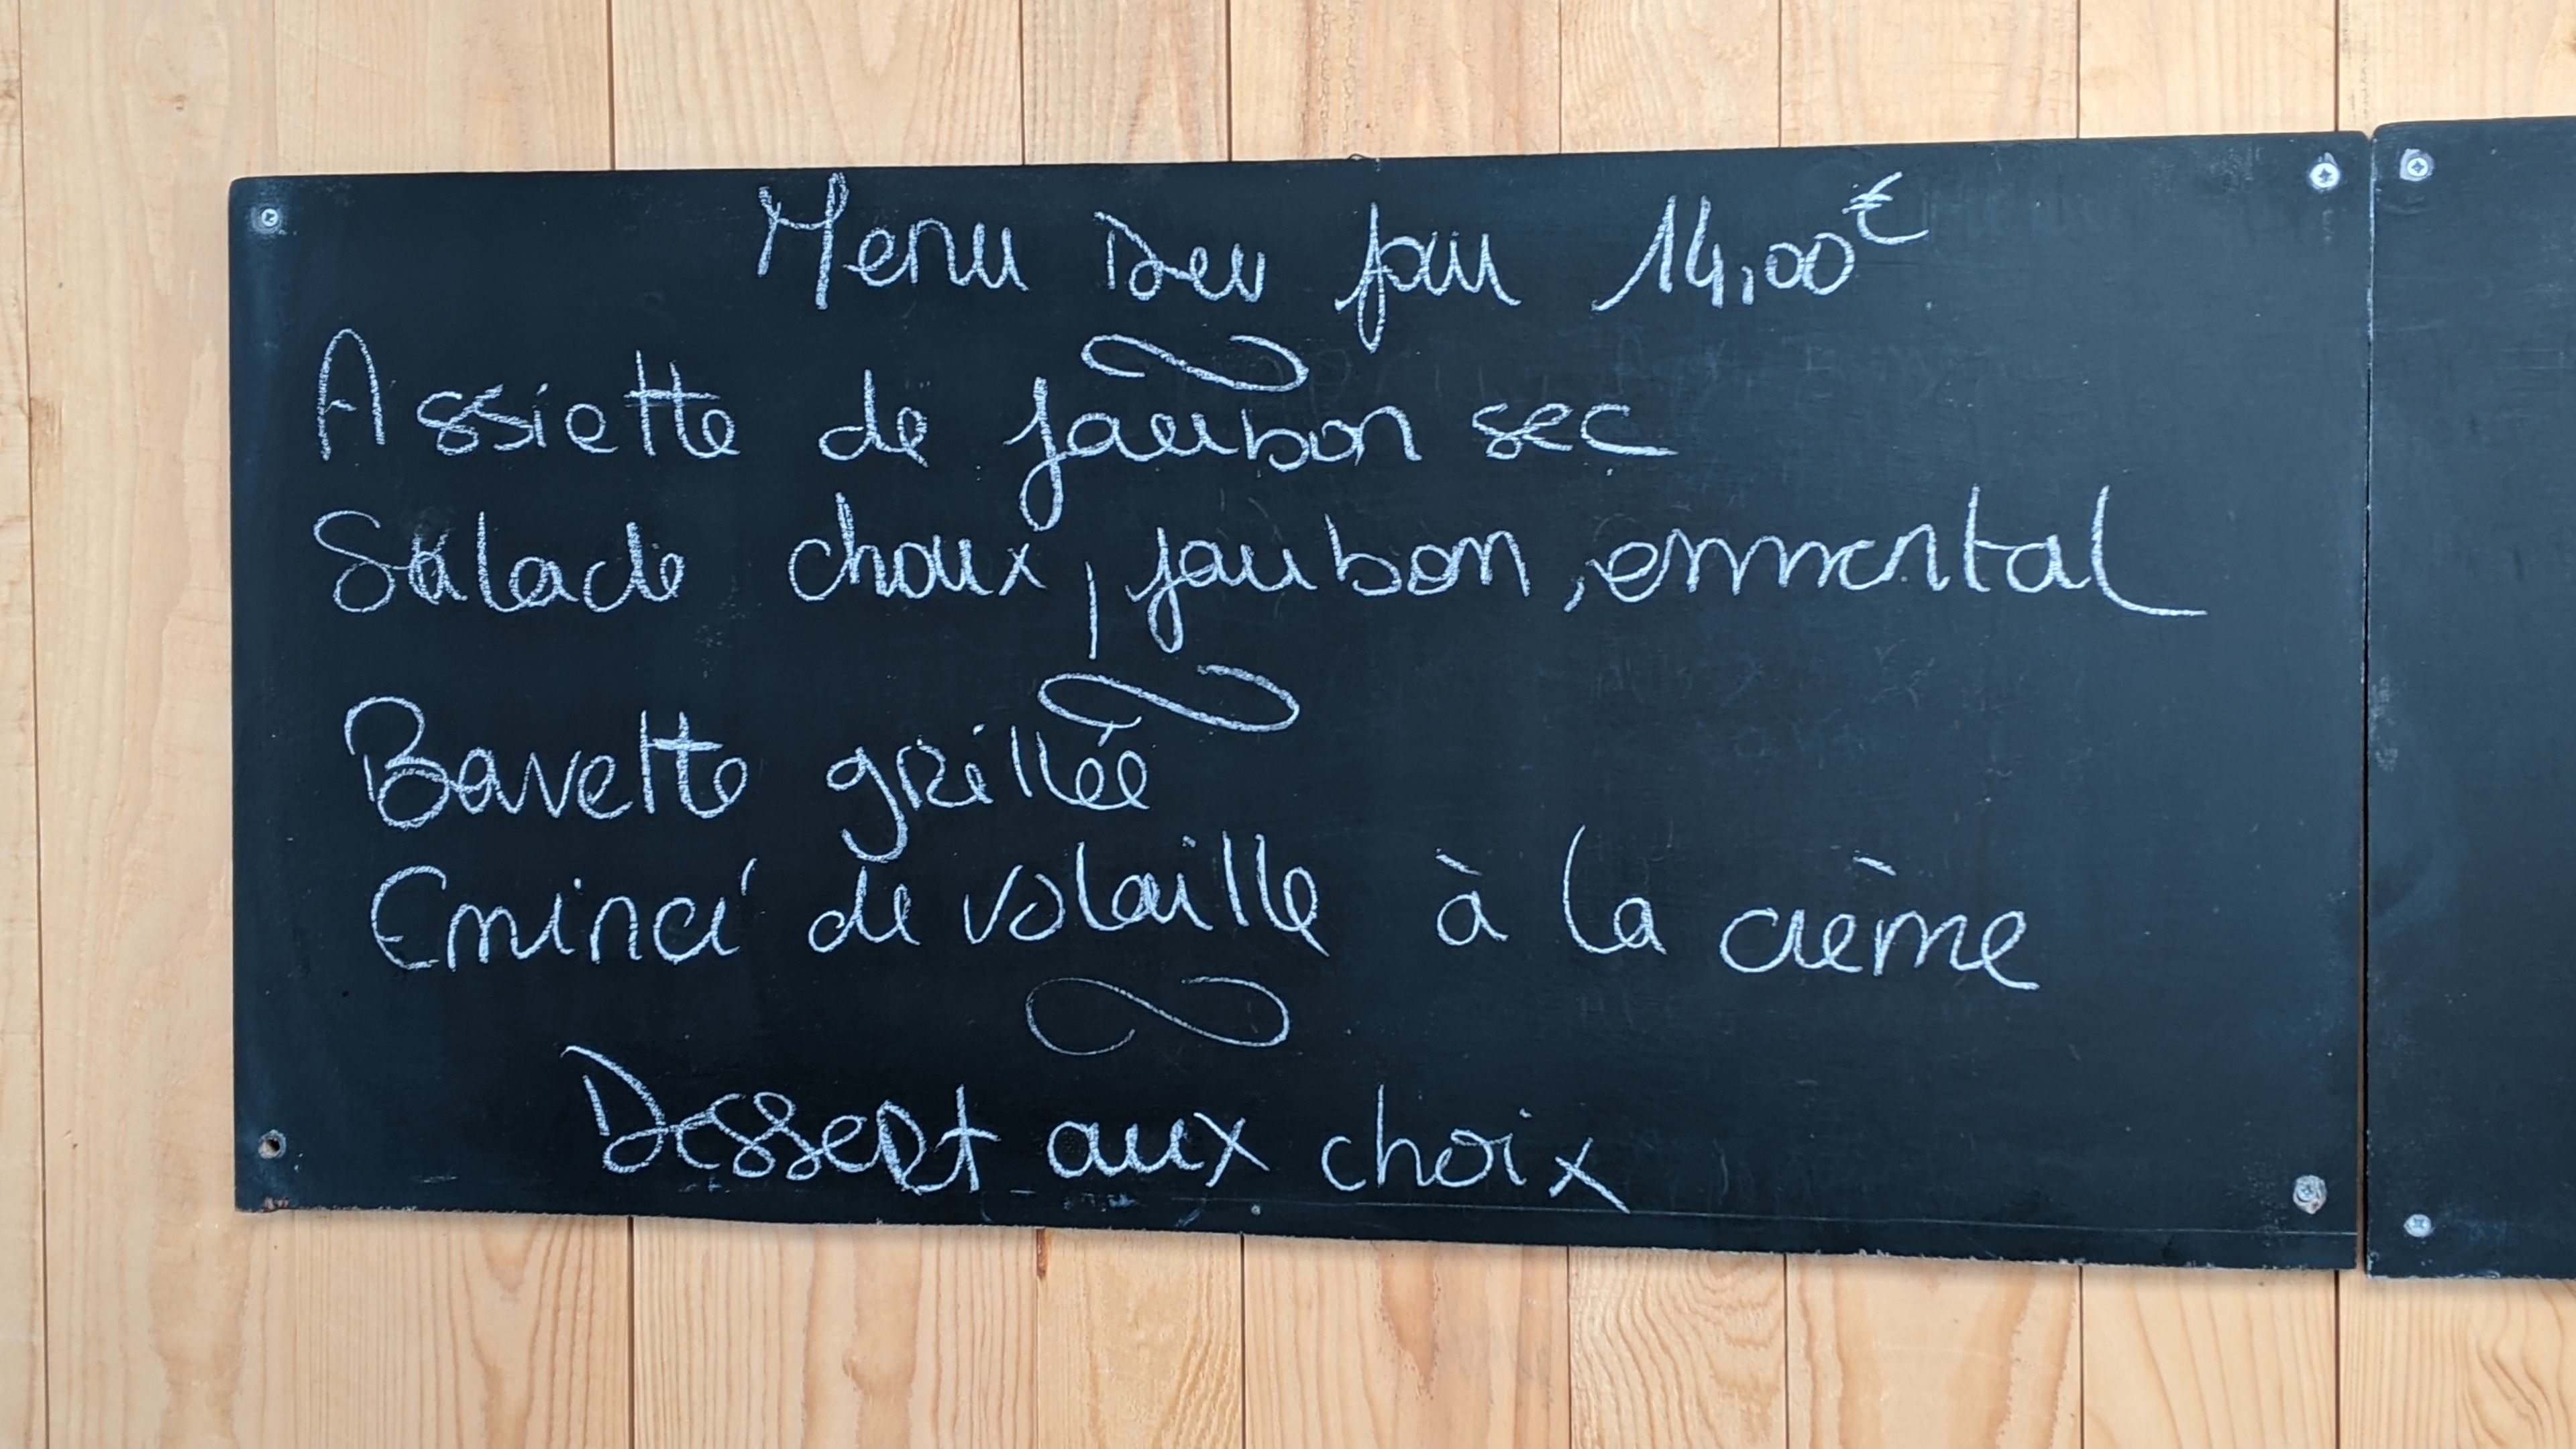 Menu Du jour 14,00€
Assiette de jambon sec
Salade choux, jambon, emmental
Bavette grillée
Emincé de volaille à la crème
Dessert aux choix